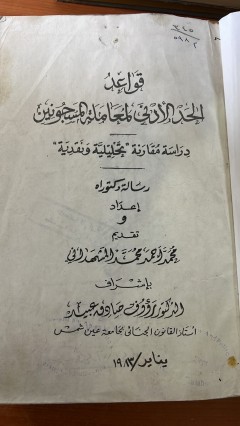 ٣٤٥
٥٩٨٢
قواعد
الحد الأدنى لمعاملة المسجونين
دراسة مقارنة "تحليلية ونقدية"
رسالة دكتوراه
إعداد
و
تقديم
محمد أحمد محمد المشهداني
بإشراف
الدكتور رؤوف صادق عبيد
أستاذ القانون الجنائي بجامعة عين شمس
يناير / ١٩٨٣